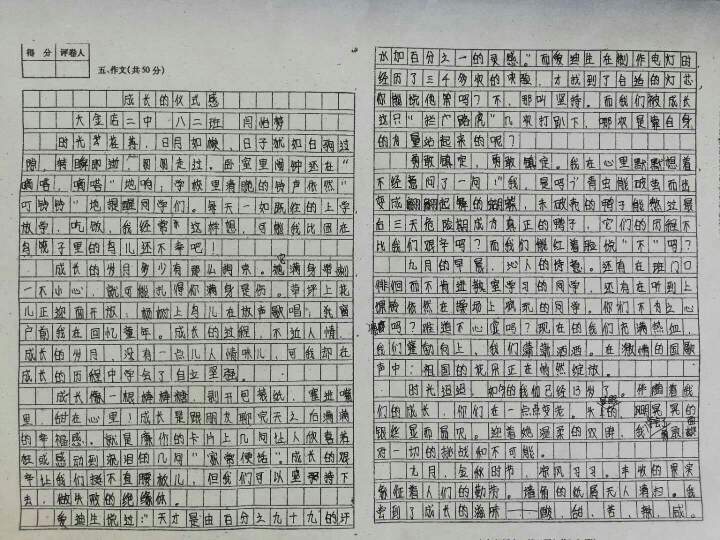 得 分 评卷人
五、作文(共50分)
成长的仪式感
大金店二中 八二班 闫怡梦
时光荏苒,日月如梭,日子就如白驹过
隙,转瞬即逝,匆匆走过。卧室里闹钟还在“
嘀嗒,嘀嗒”地响;学校里清脆的铃声依然“
叮铃铃”地提醒同学们。每天一如既往的上学
放学,吃饭,我经常 这样想,可能我比困在
鸟笼子里的鸟儿还不幸吧!
成长的岁月多少有那么拘束。它满身带刺
一不小心,就可能扎得你满身是伤。草坪上花
儿正迎面开放;杨树上鸟儿在放声歌唱;我留
户前我在回忆童年。成长的过程,不近人情,
成长的岁月,没有一点儿人情味儿,可我却在
成长的历程中学会了自立坚强。
成长像一根棒棒糖,剥开包装纸,塞进嘴
里,甜在心里!成长是跟朋友聊完天之后满满
的幸福感。就是廉价的卡片上几句让人欣喜若
狂或感动到哭泪的几句“家常便饭”。成长的艰
辛让我们挺不直腰板儿,但我们可以坚持下
去,做失败的绝缘体。
爱迪生说过:“天才是由百分之九十九的汗
水加百分之一的灵感。”而爱迪生在制作电灯时
经历了三千多次的实验,才找到了合适的灯芯
你能说他笨吗?不,那叫坚持。而我们被成长
这只“拦广路虎”几次打趴下,哪次是靠自身
的力量站起来的呢?
勇敢镇定,勇敢镇定。我在心里默默想着
不经意问了一句:“我,勇吗?”青虫能破茧而出
变成翩翩起舞的蝴蝶,未破壳的鸭子能熬过最
台三天危险期成为真正的鸭子,它们的历程不
比我们艰辛吗?而我们能红着脸说“不”吗?
九月的早晨,沁人的诗意。还有在班门口
徘徊而不肯进教室学习的同学,还有在听到上
课铃依然在操场上戏玩的同学。你们不有立心
吗?难道不心虚吗?现在的我们充满热血,
我们奋励向上,我们潇潇洒洒。在激情的国歌
声中;祖国的花朵正在悄然绽放。
时光迢迢,如今的我们已经13岁了。伴随着我
们的成长,你们在一点点变老。头 的 明晃晃的
银丝显而易见。迎着她温柔的双眸,我
对一切的挑战和不可能。
九月,金秋时节,凉风习习。丰收的果实
象征着人们的勤劳。墙角的纸屑无人清扫。我
尝到了成长的滋味——酸,甜,苦,辣,咸。